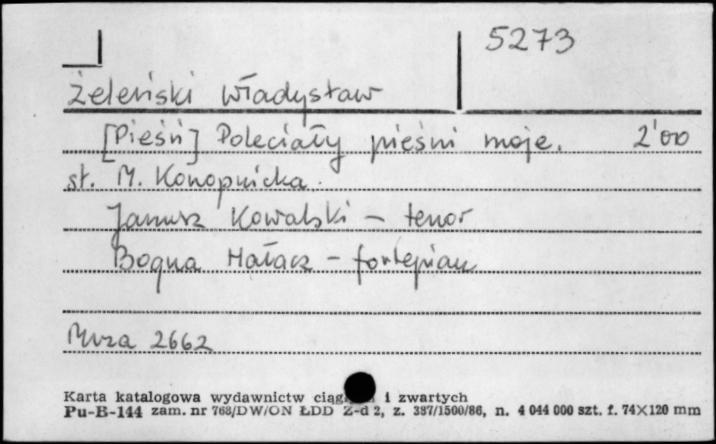 5273
Żeleński Władysław
[Pieśń] Poleciały pieśni moje. 2'00
sł. M. Konopnicka.
Janusz Kowalski - tenor
Bogna Hałacz - fortepian
Muza 2662
Karta katalogowa wydawnictw i zwartych
Pu-B-144 zam. nr 768/DW/ON ŁDD Z-d 2, z. 387/1500/86, n. 4 044 000 szt. f. 74×120 mm